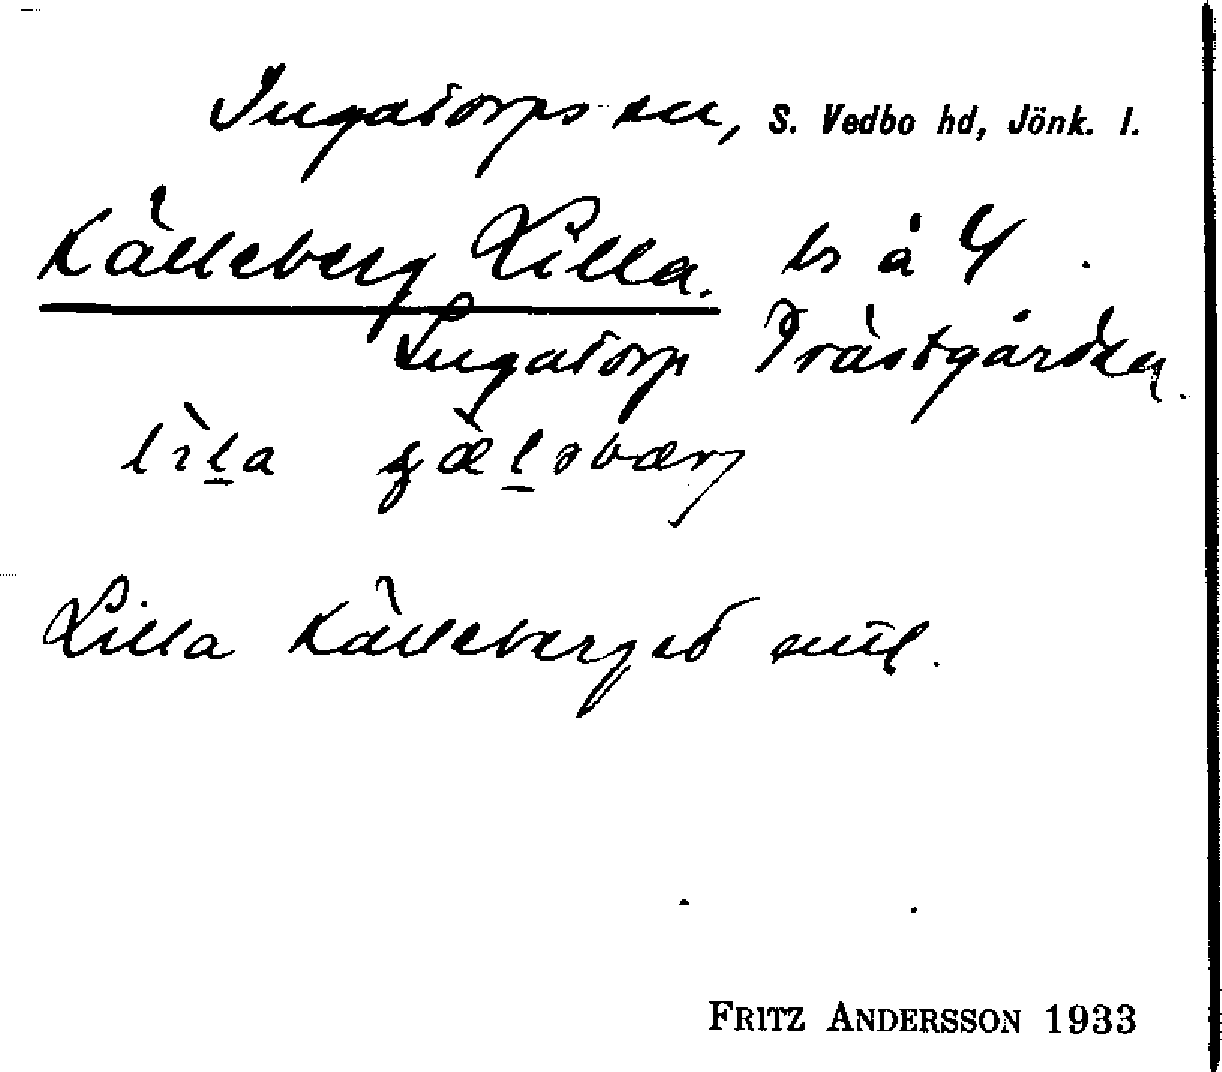 Ingatorps sn, S. Vedbo hd, Jönk. l.
Källeberg Lilla. ls å 4
Ingatorp Prästgården.
lìla
Lilla Källeberget
FRITZ ANDERSSON 1933